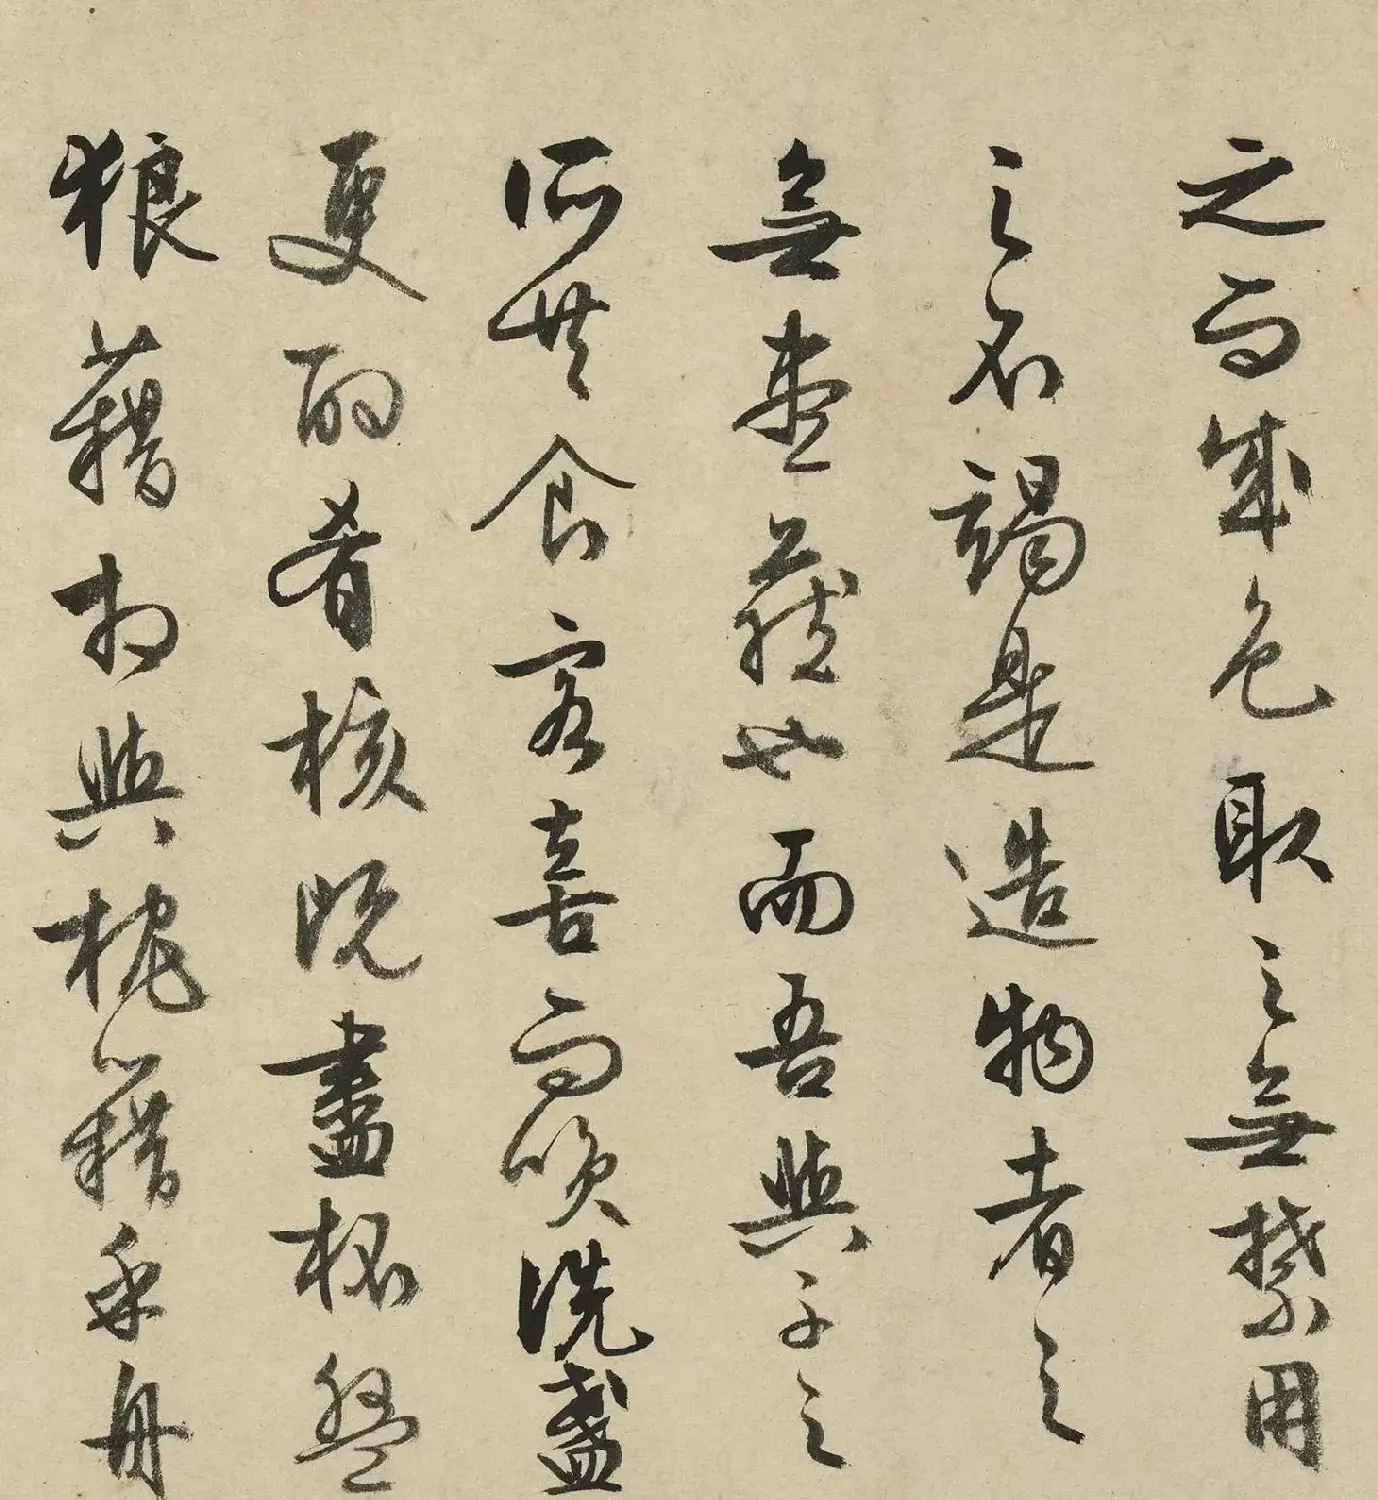 之而成色取之無禁用
之不竭是造物者之
無盡藏也而吾與子之
所共食客喜而笑洗盞
更酌肴核既盡杯盤
狼藉相與枕藉乎舟